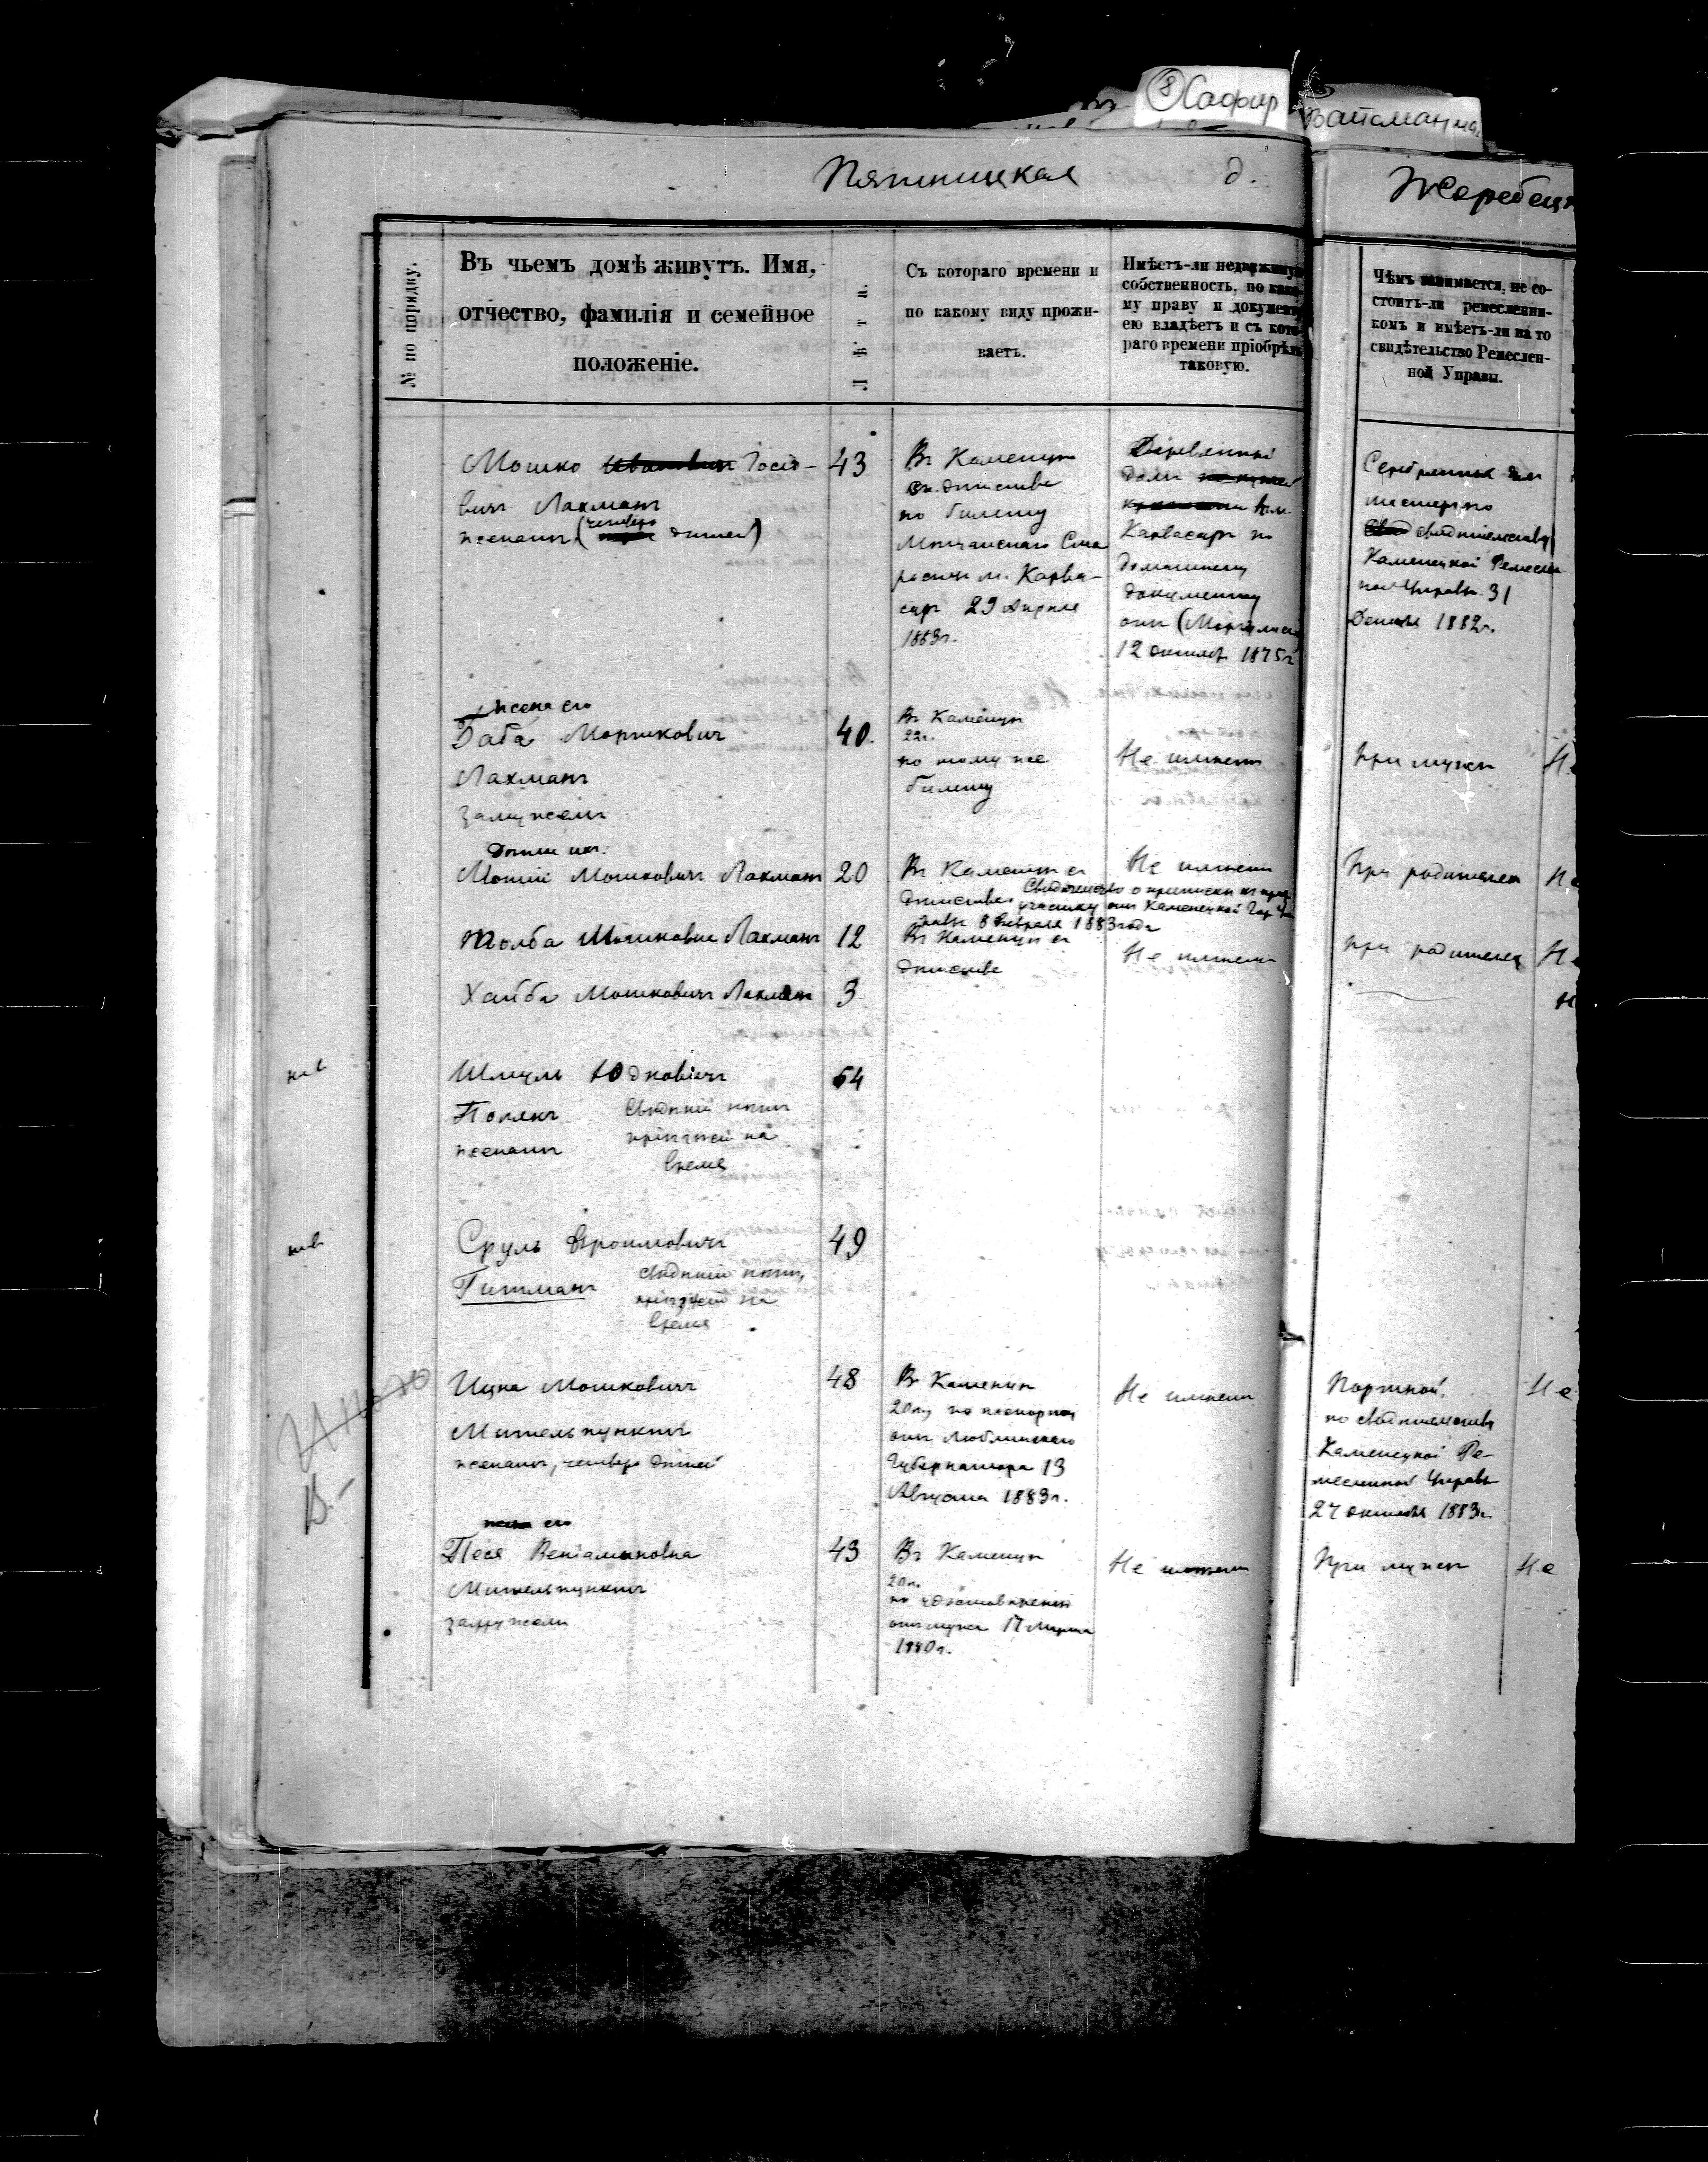 8 Сафир
Вайсман
Пятницкая д.
Жеребец
№ по порядку.
Въ чьемъ домѣ живутъ. Имя,
отчество, фамилія и семейное
положеніе.
Лѣта.
Съ котораго времени и
по какому виду прожи-
ваетъ.
Имѣетъ-ли недвижиму
собственность, по како
му праву и документу
ею владѣетъ и съ кото-
раго времени пріобрѣлъ
таковую.
Чѣмъ занимается, не со-
стоитъ-ли ремесленни-
комъ и имѣетъ-ли на то
свидѣтельство Ремеслен-
ной Управы.
Мошко Іосіо-
вичъ Лахманъ
женатъ (четверо дѣтей)
43
Въ Каменцѣ
съ дѣтства
по билету
Старосты м. Карва-
саръ 29 Апрѣля
1883г.
Деревянный
домъ
Карвасаръ по
домашнему
документу
отъ
12 октября 1875г
мастеръ по
свидѣтельству
Каменецкой Ремеслен
ной Управы 31
Декабря 1882г.
жена его
Баба Моршковичъ
Лахманъ
замужемъ
40.
Въ Каменцѣ
22г.
по тому же
билету
Не имѣетъ
при мужѣ
Не
дѣти ихъ:
Мошковичъ Лахманъ
20
Въ Каменцѣ съ
дѣтства
Свидѣтельство о припискѣ къ призыв
участку отъ Каменецкой Гор Уп
равы 8 Февраля 1883 года
Не имѣетъ
При родителяхъ
Не
Толба Мошковичъ Лахманъ
12
Въ Каменцѣ съ
дѣтства
Не имѣетъ
при родителяхъ
Не
Хайба Мошковичъ Лахманъ
3
Шмуль Юдковичъ
Полякъ
женатъ
свѣдѣній нѣтъ
пріѣзжій на
время
54
Сруль Фроимовичъ
Гитманъ
свѣдѣній нѣтъ,
пріѣзжій на
время
49
Ицка Мошковичъ
Мительпунктъ
женатъ, четверо дѣтей
48
Въ Каменцѣ
20л, по паспорту
отъ Люблинскаго
Губернатора 13
Августа 1883г.
Не имѣетъ
Портной,
по свидѣтельству
Каменецкой Ре-
месленной Управы
27 октября 1883г.
Не
жена его
Песя Веніаминовна
Мительпунктъ
замужемъ
43
Въ Каменцѣ
20л.
по удостовѣренію
отъ мужа 17 Марта
1880г.
Не имѣетъ
При мужѣ
Не